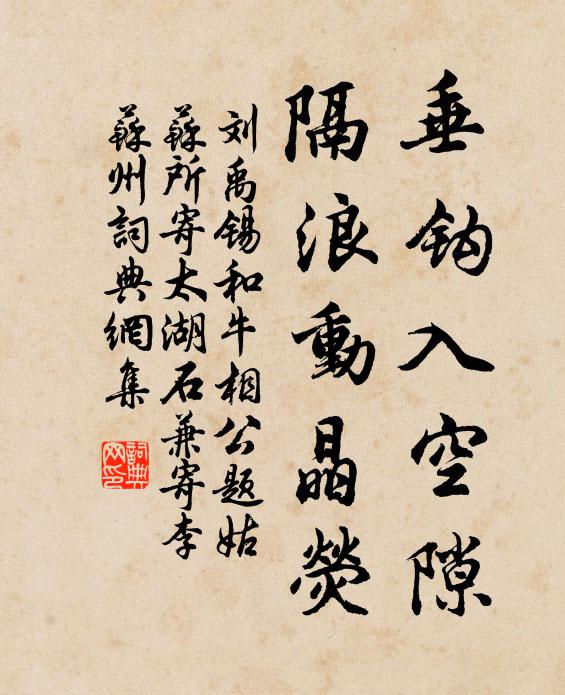 垂鈎入空隙
隔浪動晶熒
刘禹锡和牛相公题姑
蘇所寄太湖石兼寄李
蘇州詞典網集
詞典网印